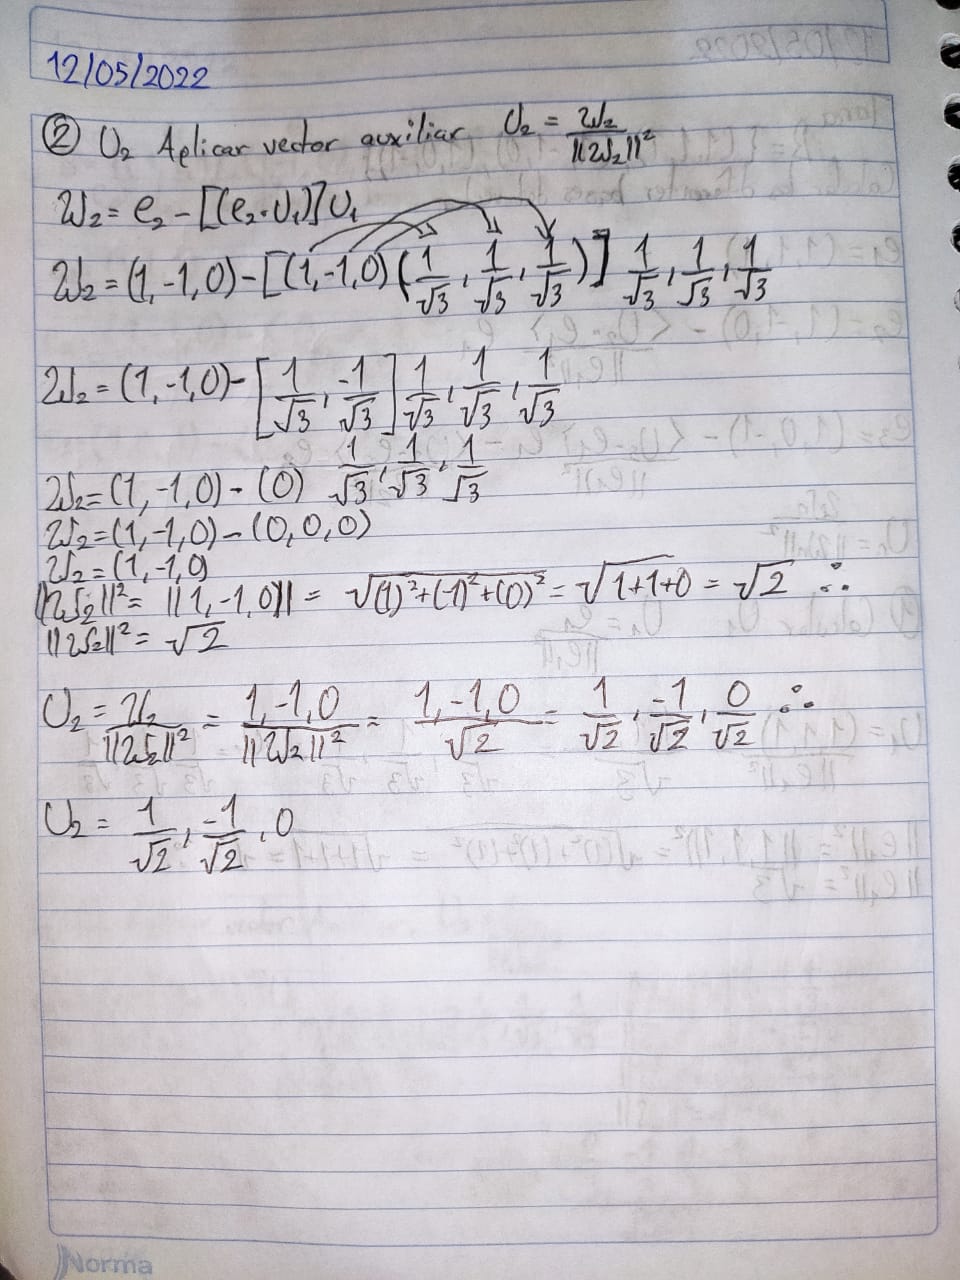 12/05/2022
② U₂ Aplicar vector auxiliar U₂ = W₂/||W₂||²
W₂ = e₂ - [(e₂·U₁)]U₁
W₂ = (1,-1,0) - [(1,-1,0)(1/√3, 1/√3, 1/√3)] 1/√3, 1/√3, 1/√3
W₂ = (1,-1,0) - [1/√3, -1/√3] 1/√3, 1/√3, 1/√3
W₂ = (1,-1,0) - (0) 1/√3, 1/√3, 1/√3
W₂ = (1,-1,0) - (0,0,0)
W₂ = (1,-1,0)
||W₂||² = ||1,-1,0|| = √(1)²+(-1)²+(0)² = √1+1+0 = √2 ∴
||W₂||² = √2
U₂ = W₂/||W₂||² = 1,-1,0/||W₂||² = 1,-1,0/√2 = 1/√2, -1/√2, 0/√2 ∴
U₂ = 1/√2, -1/√2, 0
Norma